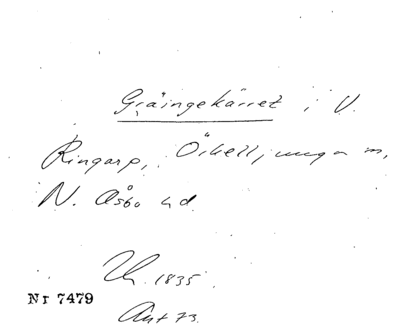 Gräingekärret i V.
Ringarp, Örkelljunga sn,
N. Åsbo hd.
Uh. 1835.
Nr 7479
Ant 73.